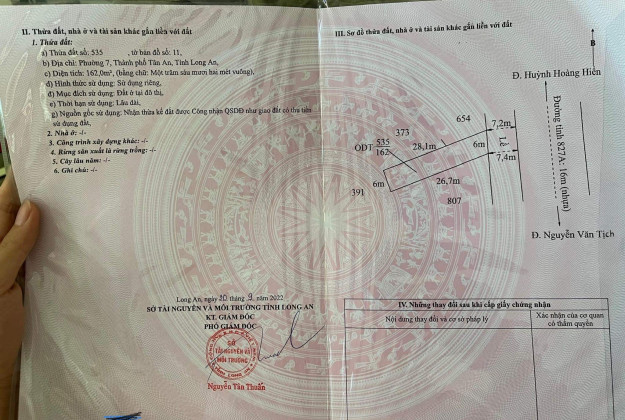 II. Thửa đất, nhà ở và tài sản khác gắn liền với đất
1. Thửa đất:
a) Thửa đất số: 535 , tờ bản đồ số: 11,
b) Địa chỉ: Phường 7, Thành phố Tân An, Tỉnh Long An,
c) Diện tích: 162,0m², (bằng chữ: Một trăm sáu mươi hai mét vuông),
d) Hình thức sử dụng: Sử dụng riêng,
đ) Mục đích sử dụng: Đất ở tại đô thị,
e) Thời hạn sử dụng: Lâu dài,
g) Nguồn gốc sử dụng: Nhận thừa kế đất được Công nhận QSDĐ như giao đất có thu tiền
sử dụng đất,
2. Nhà ở: -/-
3. Công trình xây dựng khác: -/-
4. Rừng sản xuất là rừng trồng: -/-
5. Cây lâu năm: -/-
6. Ghi chú: -/-
Long An, ngày 20 tháng 9 năm 2022
SỞ TÀI NGUYÊN VÀ MÔI TRƯỜNG TỈNH LONG AN
KT. GIÁM ĐỐC
PHÓ GIÁM ĐỐC
SỞ
TÀI NGUYÊN VÀ
MÔI TRƯỜNG
Nguyễn Tân Thuấn
III. Sơ đồ thửa đất, nhà ở và tài sản khác gắn liền với đất
B
Đ. Huỳnh Hoàng Hiển
654
7,2m
373
28,1m
6m
Lề
ODT 535
162
7,4m
6m
26,7m
391
807
Đường tỉnh 827A: 16m (nhựa)
Đ. Nguyễn Văn Tịch
IV. Những thay đổi sau khi cấp giấy chứng nhận
Nội dung thay đổi và cơ sở pháp lý
Xác nhận của cơ quan
có thẩm quyền